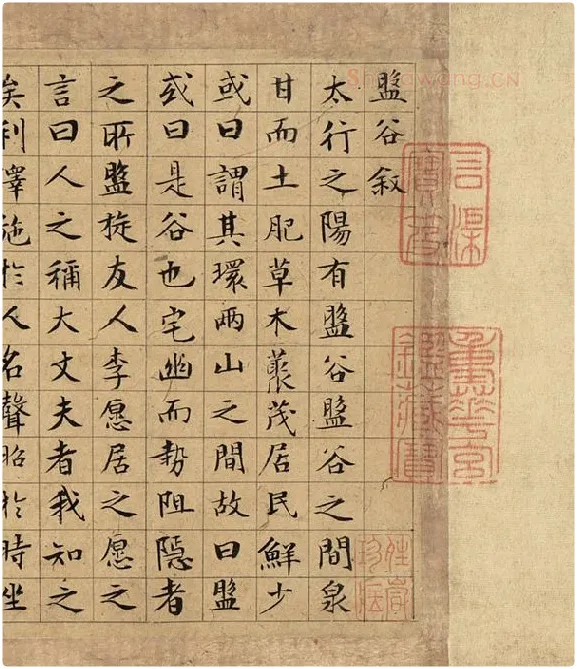 盤谷叙
太行之陽有盤谷盤谷之間泉
甘而土肥草木藂茂居民鮮少
或曰謂其環兩山之間故曰盤
或曰是谷也宅幽而勢阻隱者
之所盤旋友人李愿居之愿之
言曰人之稱大丈夫者我知之
矣利澤施於人名聲昭於時坐
石渠
寶笈
重華宮
鑑藏寶